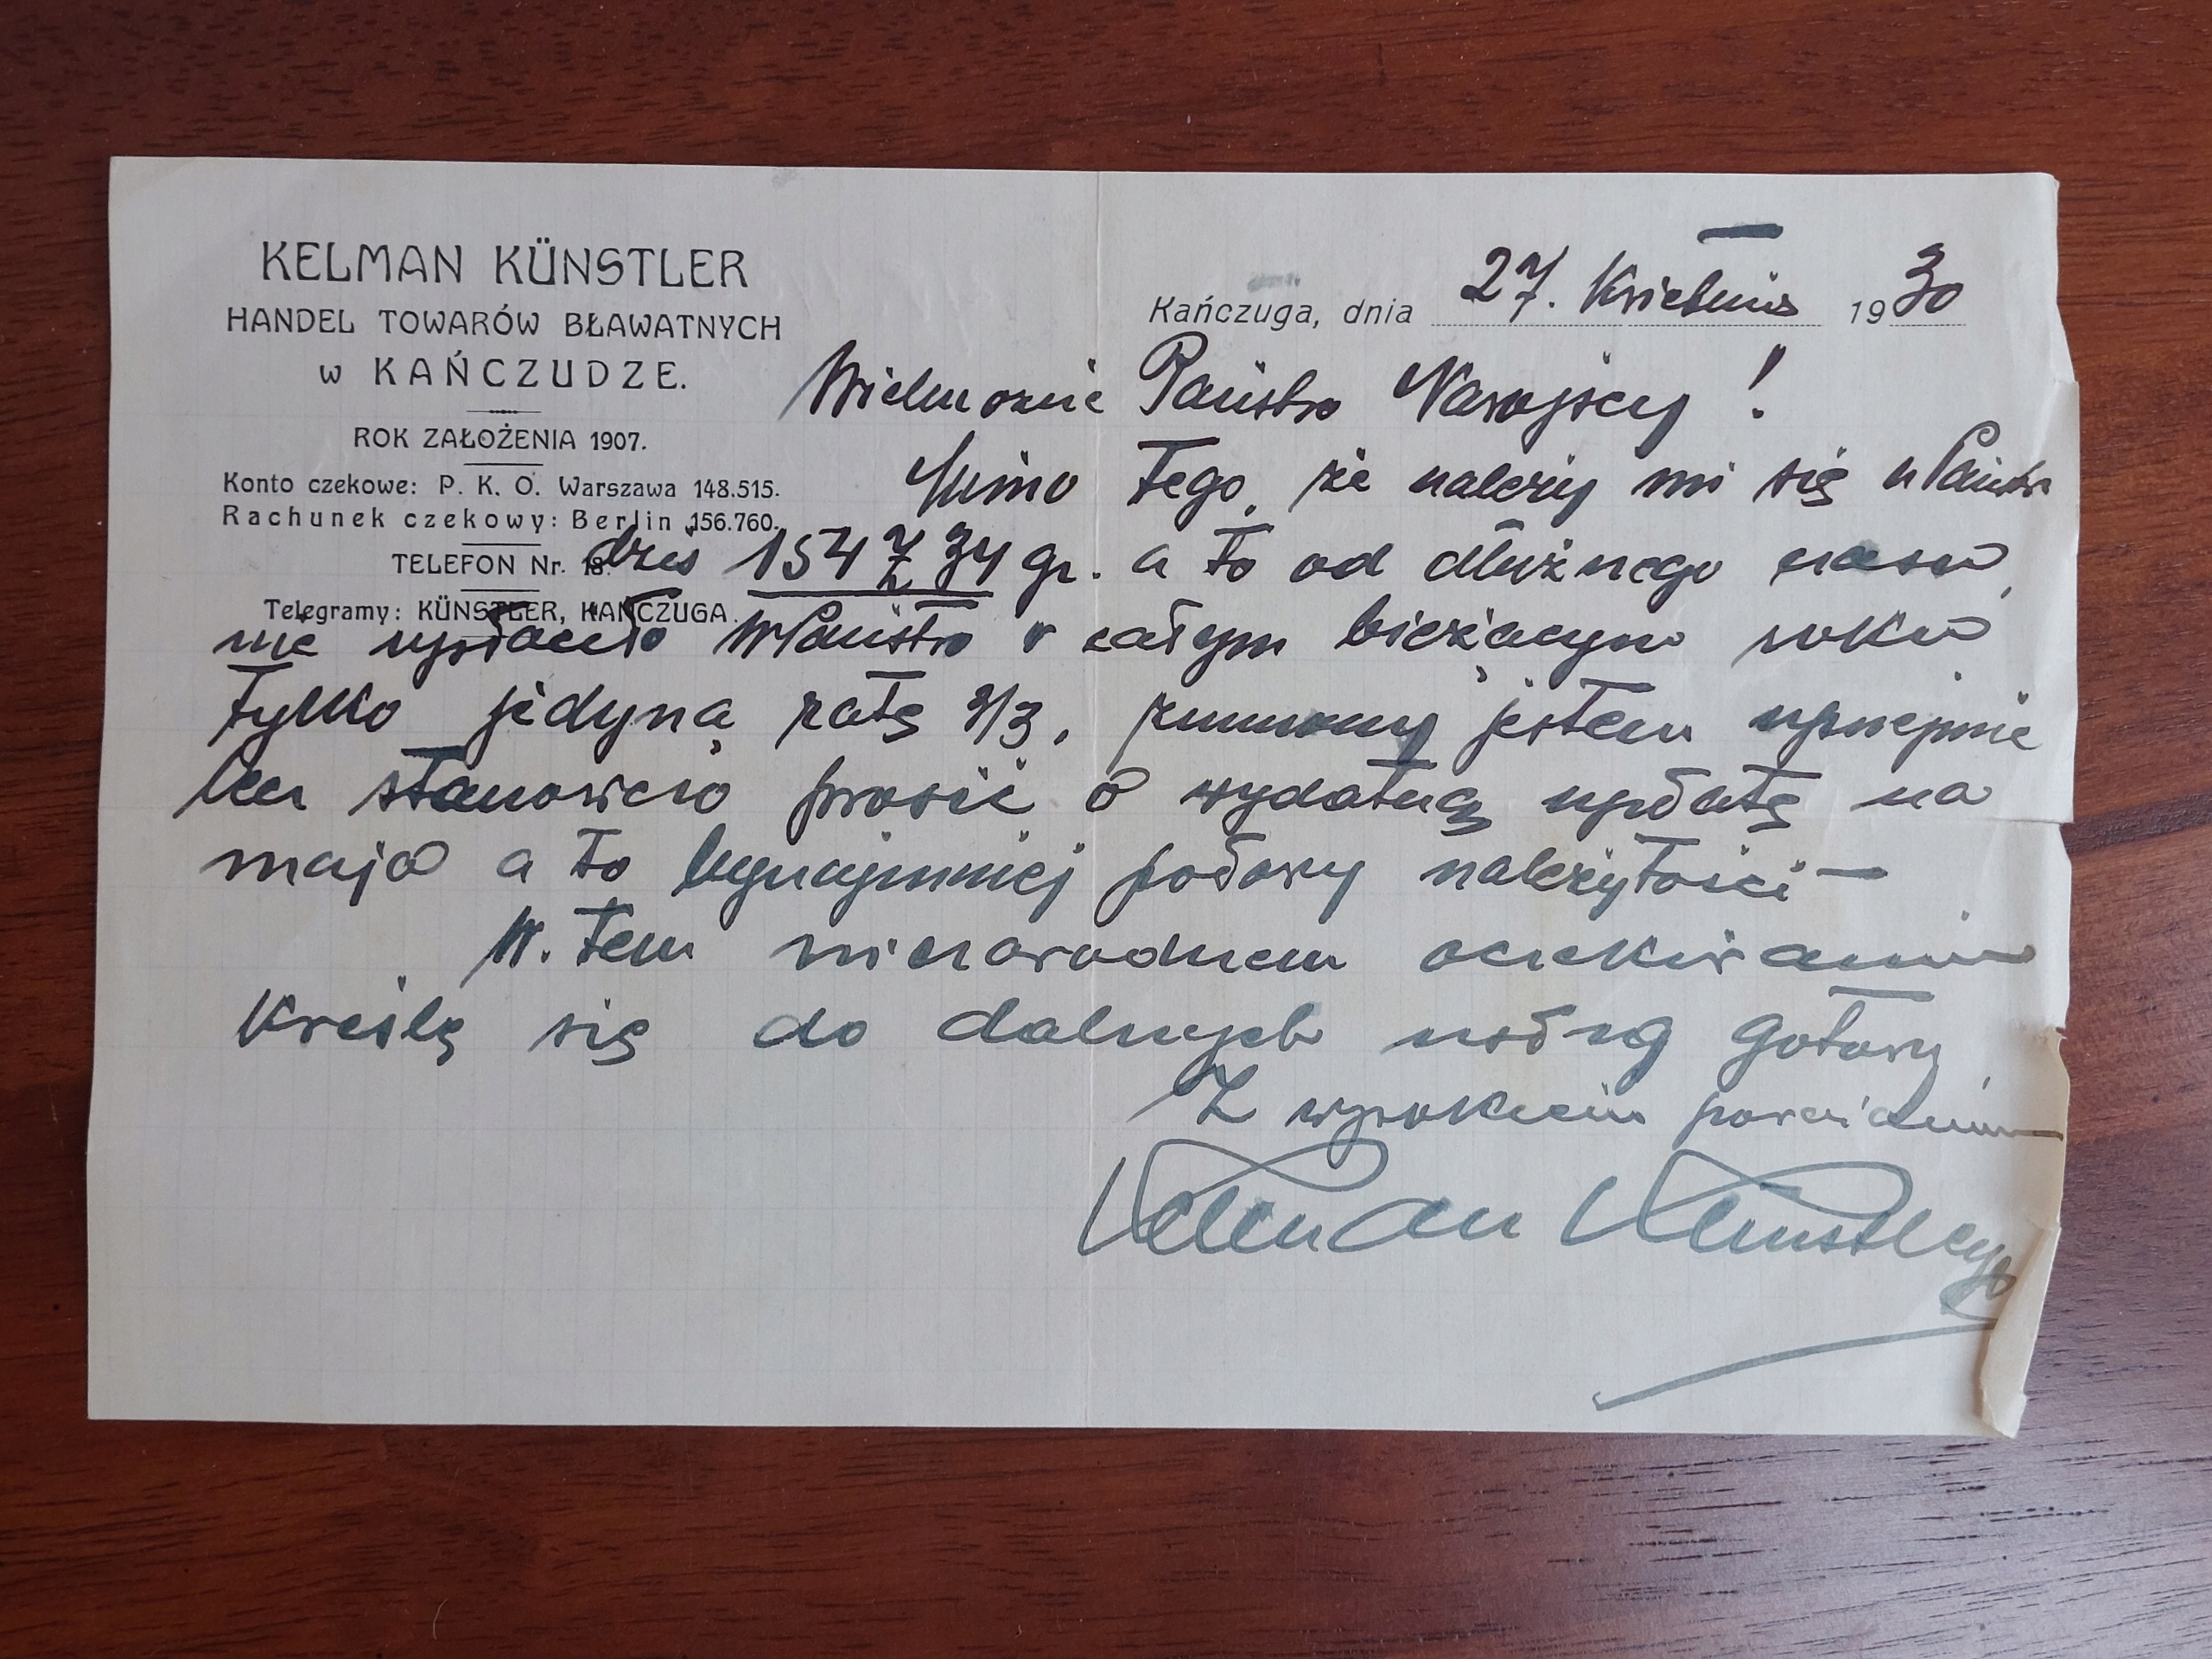 KELMAN KÜNSTLER
HANDEL TOWARÓW BŁAWATNYCH
w KAŃCZUDZE.
ROK ZAŁOŻENIA 1907.
Konto czekowe: P. K. O. Warszawa 148.515.
Rachunek czekowy: Berlin 156.760.
TELEFON Nr. 18.
Telegramy: KÜNSTLER, KAŃCZUGA.
Kańczuga, dnia 27. Kwietnia 1930
Wielmożni Państwo !
Mimo tego, że należy mi się u Państwa
dziś 154 zł 34 gr. a to od dłuższego czasu,
nie wpłacili WPaństwo w całym bieżącym roku
tylko jedyną ratę 3/3, zmuszony jestem uprzejmie
lecz stanowczo prosić o wydatną wpłatę na
maja a to bynajmniej połowy należytości —
W tem niezawodnem oczekiwaniu
Kreślę się do dalszych usług gotowy
Z wysokiem poważaniem
Kelman Künstler